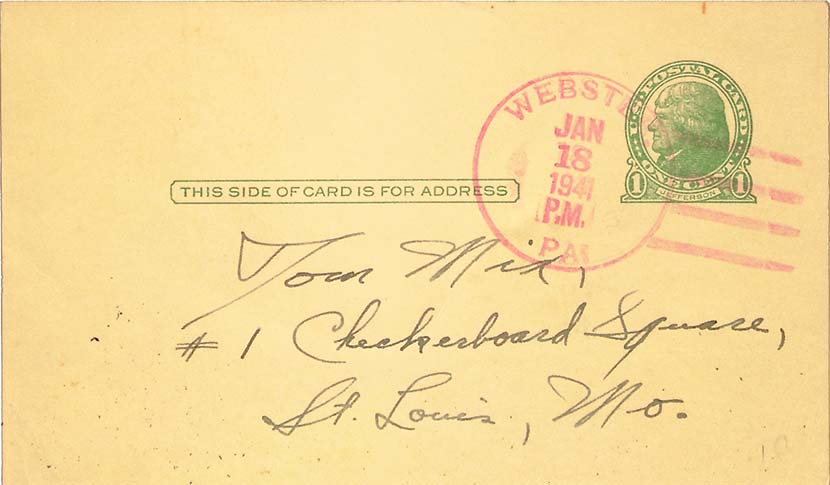 U.S. POSTAL CARD
ONE CENT
1 JEFFERSON 1
JAN
18
1941
P.M.
PA
THIS SIDE OF CARD IS FOR ADDRESS
Tom Mix,
# 1 Checkerboard Square,
St. Louis, Mo.